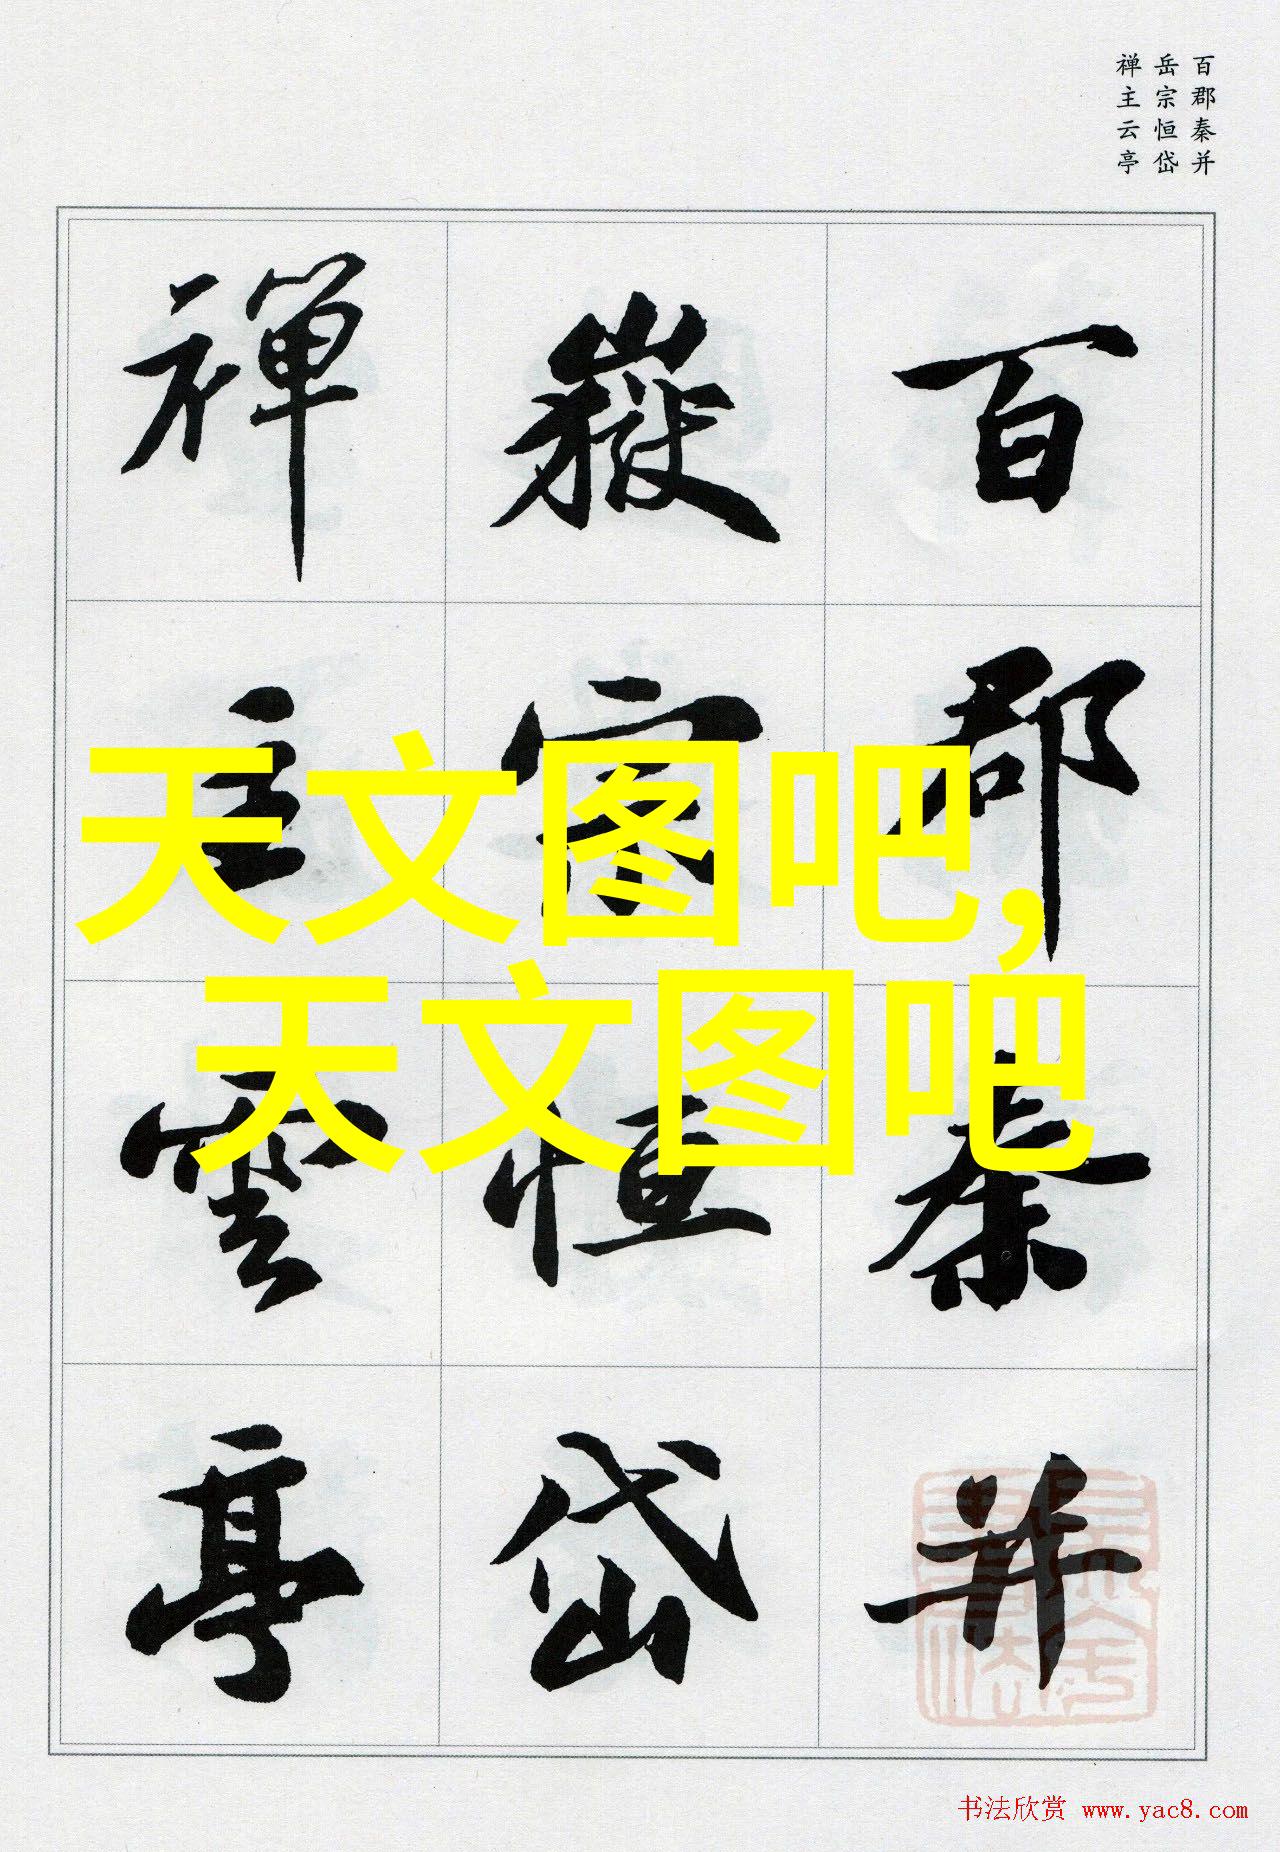 百郡秦并
岳宗恒岱
禅主云亭
百郡秦并
嶽宗恒岱
禪主雲亭
天文图吧,
天文图吧
书法欣赏 www.yac8.com